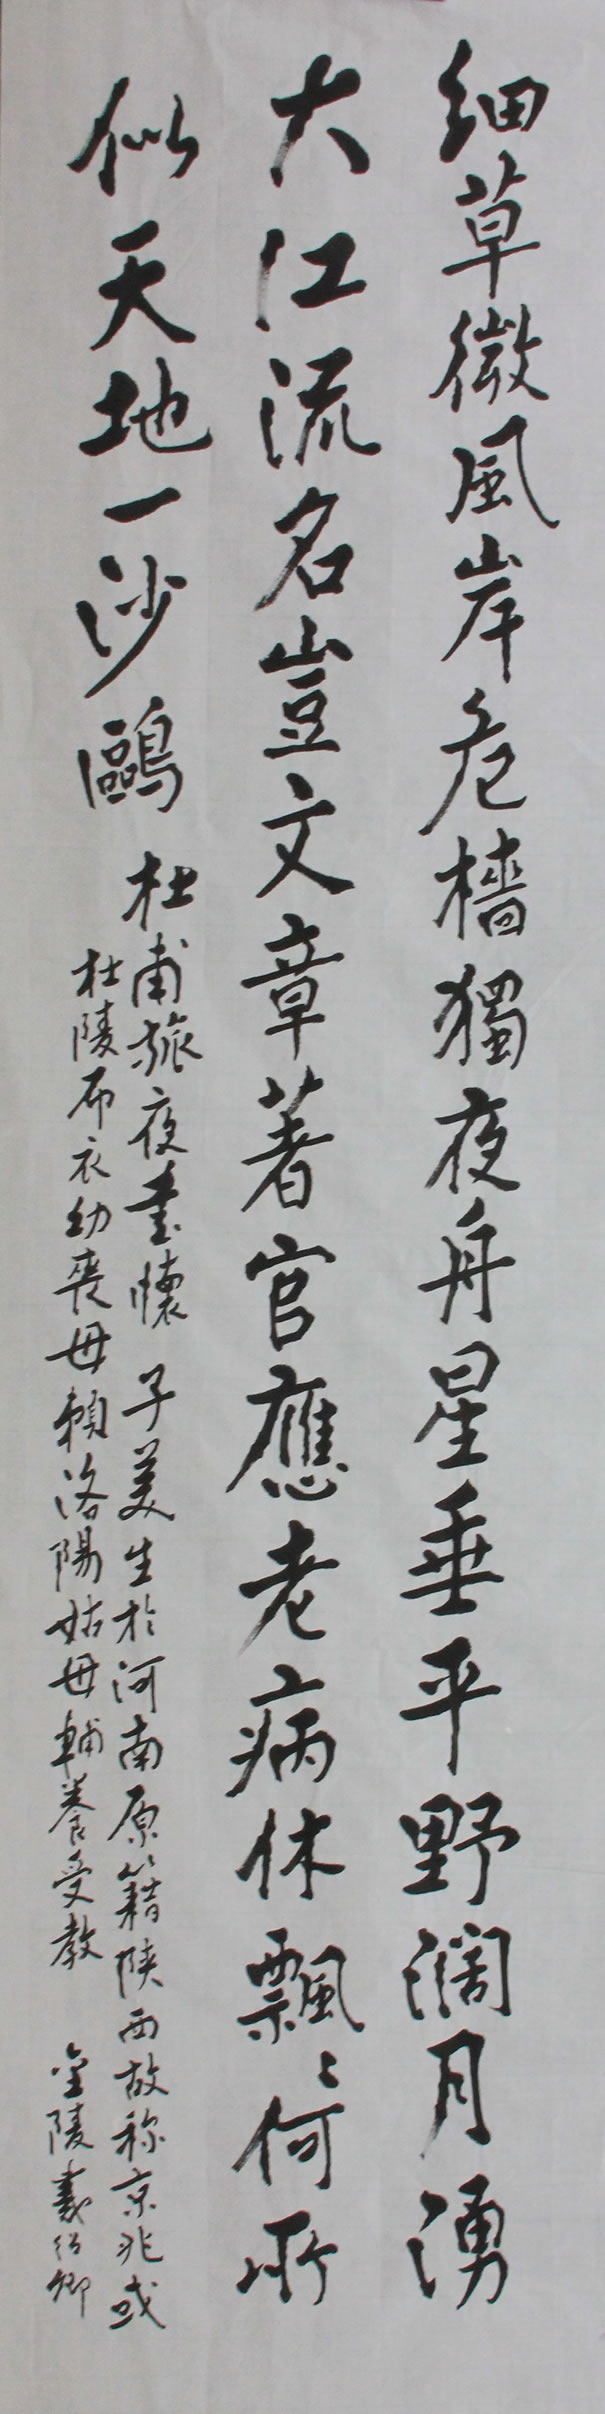 细草微風岸危檣獨夜舟星垂平野濶月湧
大江流名豈文章著官應老病休飄〻何所
似天地一沙鷗
杜甫旅夜書懷 子美生於河南原籍陕西故称京兆或
杜陵布衣幼喪母賴洛陽姑母輔養受教 金陵義卿